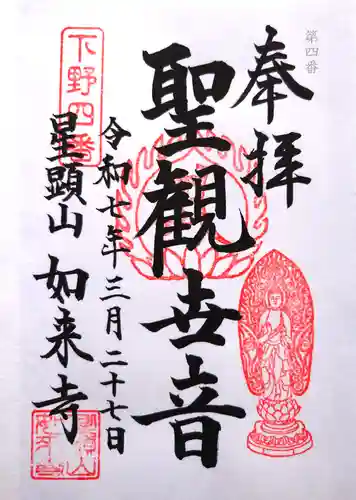 第四番
奉拝
聖観世音
令和七年三月二十七日
下野四番
星顕山 如来寺